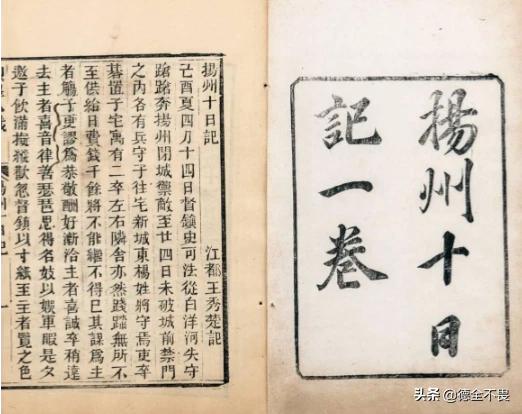 揚州十日
記一卷
揚州十日記
江都王秀楚記
己酉夏四月十四日督鎮史可法從白洋河失守
踉蹌奔揚州閉城禦敵至廿四日未破城前禁門
之內各有兵守予住宅新城東楊姓將守焉吏卒
碁置予宅寓有二卒左右隣舍亦然踐踏無所不
至供給日費錢千餘將不能繼不得已共謀為主
者觴予更謬為恭敬酬好漸洽主者喜誡卒稍遠
去主者喜音律善琵琶思得名妓以娛軍暇是夕
邀予飲滿擬縱歡忽督鎮以寸紙至主者覽之色
头条 @德全不畏